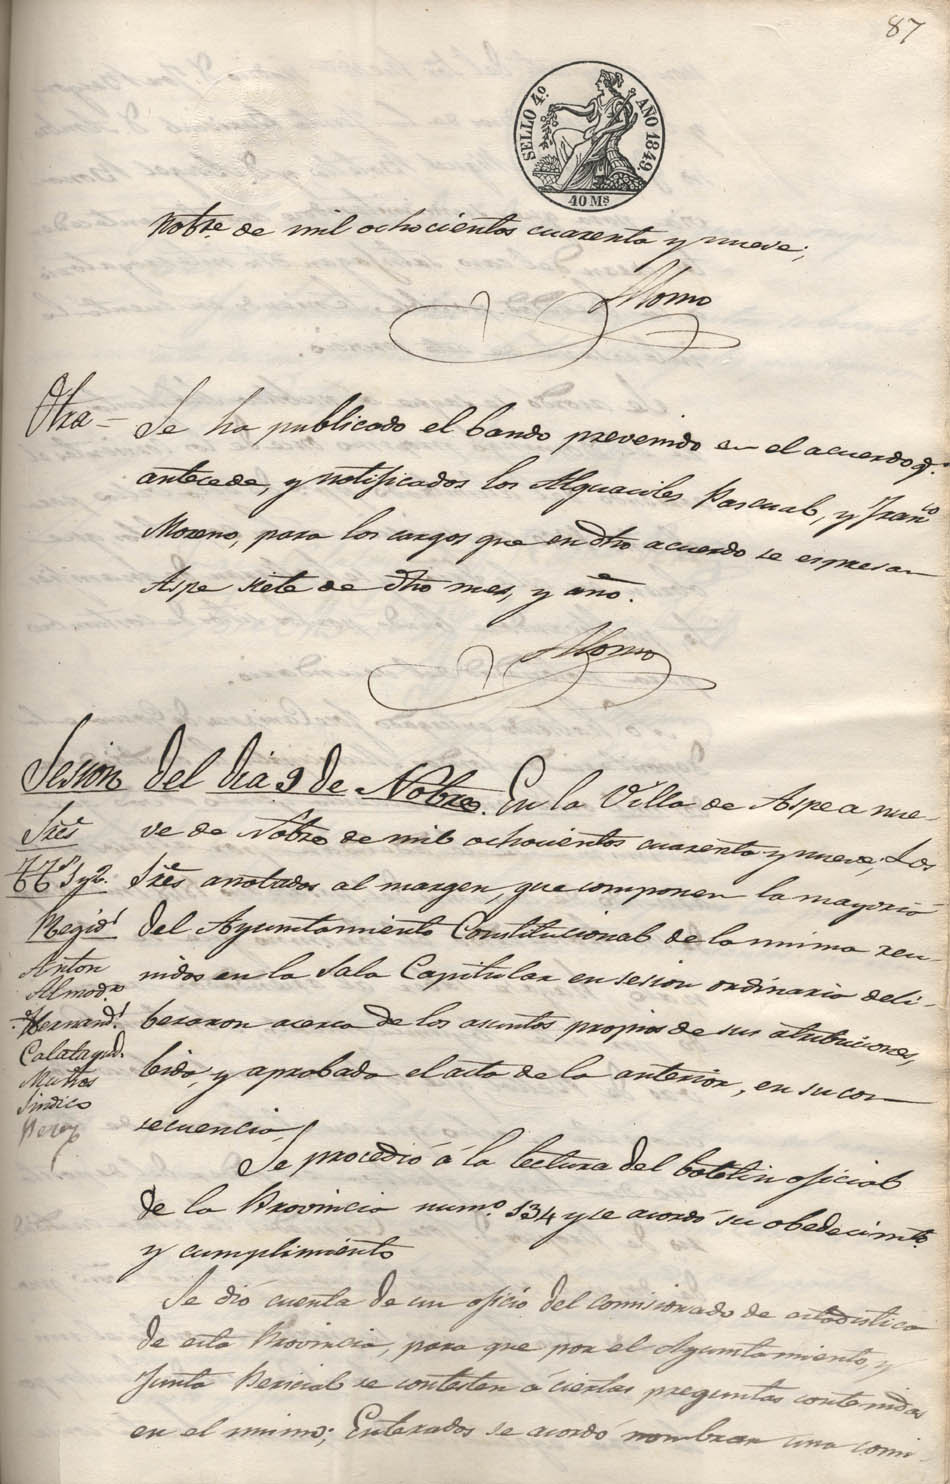 87
SELLO 4.º AÑO 1849.
40 Ms
Nobre. de mil ochocientos cuarenta y nueve;
Otra = Se ha publicado el bando prevenido en el acuerdo q.e
antecede, y notificados los Alguaciles Pascual, y Franco
Moreno, para los cargos que en dho acuerdo se espresan
Aspe siete de dho mes, y año.
Sesion del dia 9 de Nobre. En la Villa de Aspe a nue-
Sres
ve de Nobre de mil ochocientos cuarenta y nueve; Los
TTes 1 y 2.
Sres anotados al margen, que componen la mayoria
Regid.s
del Ayuntamiento Constitucional de la misma reu-
Anton
nidos en la Sala Capitular en sesion ordinaria deli-
Almodr.
Hernand.s
beraron acerca de los asuntos propios de sus atribuciones,
Calatayud.
leida, y aprobada el acta de la anterior, en su con
Mattos
Sindico
secuencia,
Perez
Se procedió á la lectura del boletin oficial
de la Provincia num.º 134 y se acordó su obedecimto.
y cumplimiento
Se dió cuenta de un oficio del comisionado de estadistica
de esta Provincia, para que por el Ayuntamiento, y
Junta Pericial se contesten á ciertas preguntas contenidas
en el mismo; Enterados se acordó nombrar una comi-